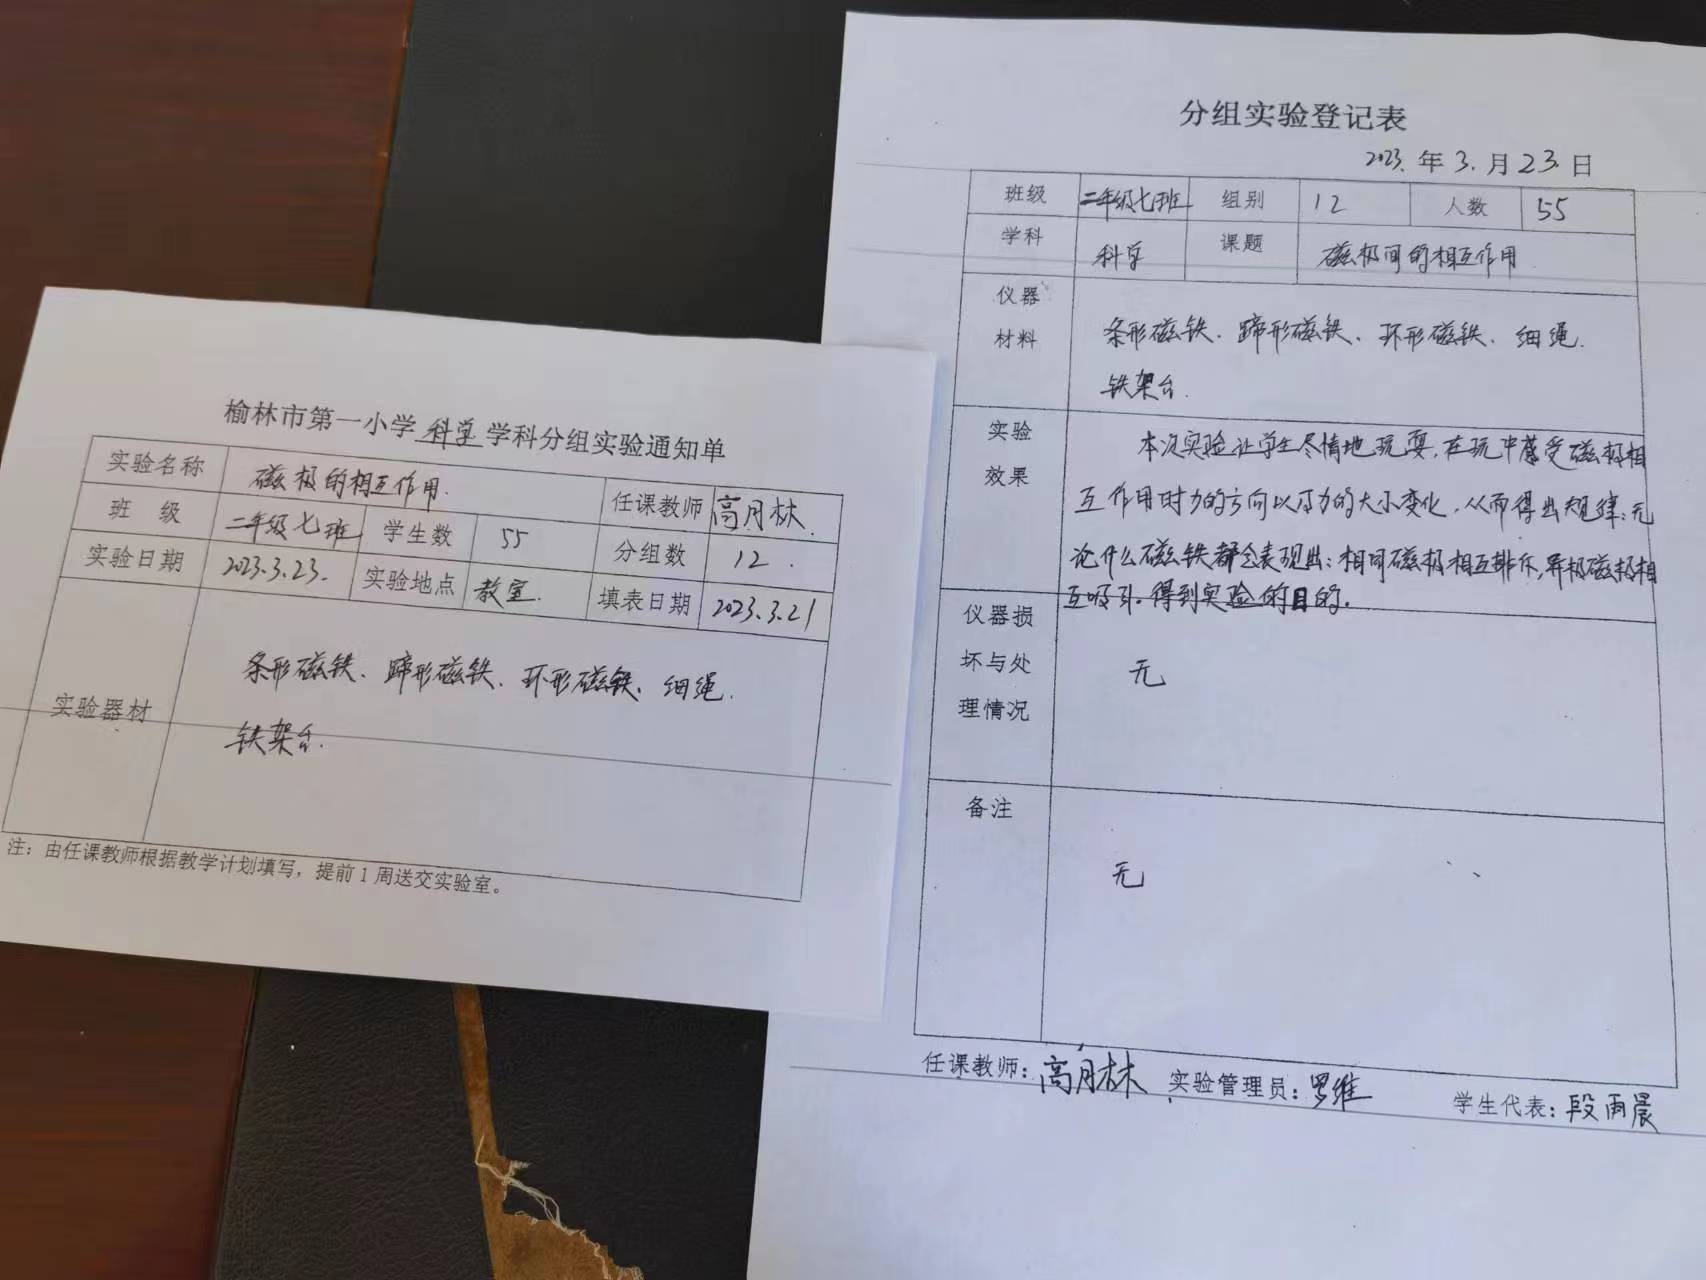 榆林市第一小学 科学 学科分组实验通知单
实验名称 磁极的相互作用. 任课教师 高月林.
班 级 二年级七班 学生数 55 分组数 12.
实验日期 2023.3.23. 实验地点 教室. 填表日期 2023.3.21
实验器材 条形磁铁、蹄形磁铁、环形磁铁、细绳.
铁架台.
注：由任课教师根据教学计划填写，提前1周送交实验室。
分组实验登记表
2023. 年 3. 月 23. 日
班级 二年级七班 组别 12 人数 55
学科 科学 课题 磁极间的相互作用
仪器
材料
条形磁铁、蹄形磁铁、环形磁铁、细绳.
铁架台.
实验
效果
本次实验让学生尽情地玩耍,在玩中感受磁极相
互作用时力的方向以及力的大小变化,从而得出规律:无
论什么磁铁都会表现出:相同磁极相互排斥,异极磁极相
互吸引。得到实验的目的。
仪器损
坏与处
理情况
无
备注
无
任课教师：高月林 实验管理员：罗维 学生代表：段雨晨